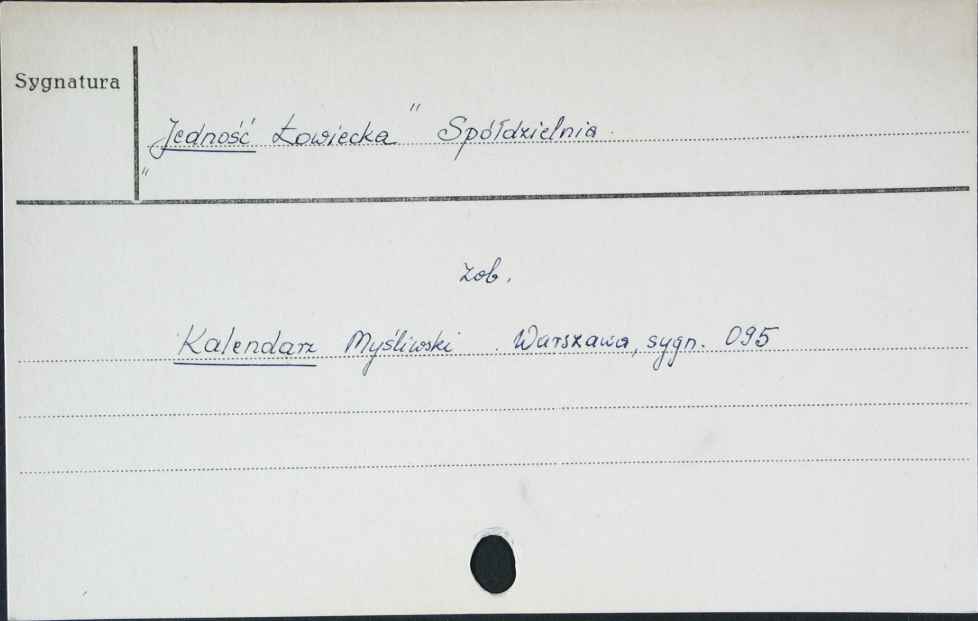 Sygnatura
„Jedność Łowiecka” Spółdzielnia
zob.
Kalendarz Myśliwski. Warszawa, sygn. 095